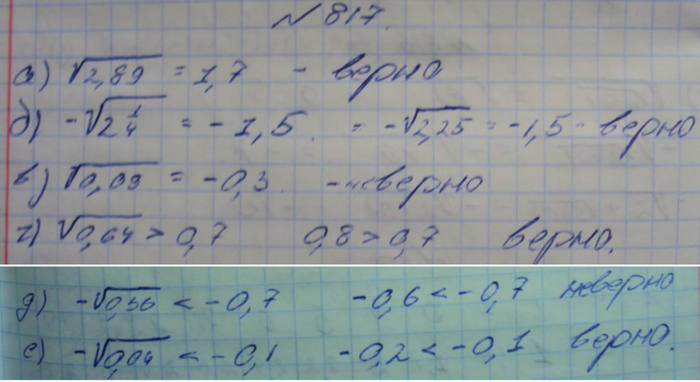 № 817.
а) √2,89 = 1,7 - верно
б) -√2 1/4 = -1,5. = -√2,25 = -1,5 - верно
в) √0,09 = -0,3. - неверно
г) √0,64 > 0,7 0,8 > 0,7 верно.
д) -√0,36 < -0,7 -0,6 < -0,7 неверно
е) -√0,04 < -0,1 -0,2 < -0,1 верно.